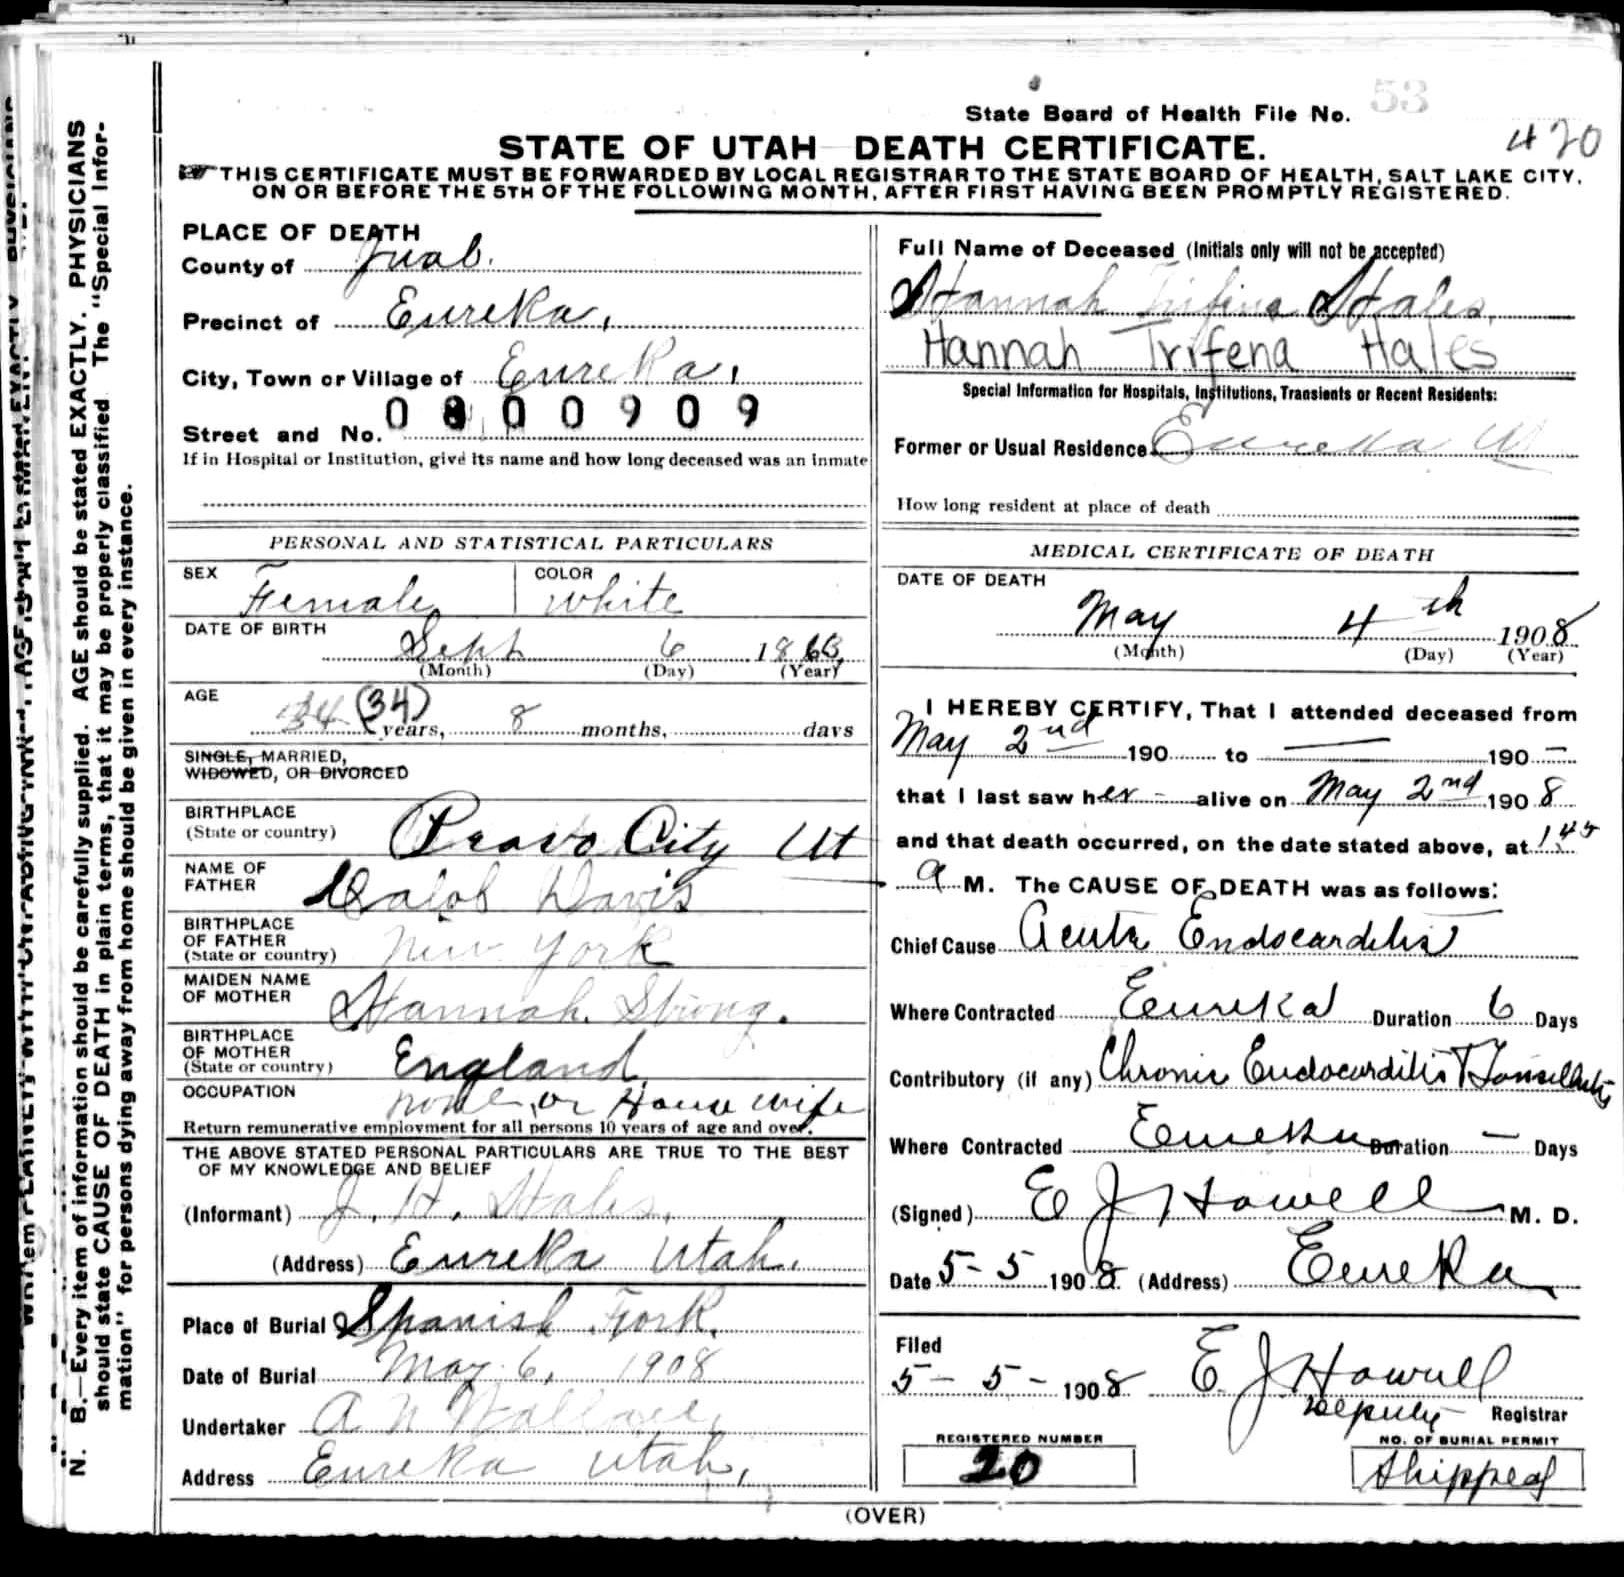 53
State Board of Health File No.
420
STATE OF UTAH DEATH CERTIFICATE.
THIS CERTIFICATE MUST BE FORWARDED BY LOCAL REGISTRAR TO THE STATE BOARD OF HEALTH, SALT LAKE CITY,
ON OR BEFORE THE 5TH OF THE FOLLOWING MONTH, AFTER FIRST HAVING BEEN PROMPTLY REGISTERED.
N. B.—Every item of information should be carefully supplied. AGE should be stated EXACTLY. PHYSICIANS
should state CAUSE OF DEATH in plain terms, that it may be properly classified. The "Special Infor-
mation" for persons dying away from home should be given in every instance.
PLACE OF DEATH
County of Juab.
Precinct of Eureka,
City, Town or Village of Eureka,
0 8 0 0 9 0 9
Street and No.
If in Hospital or Institution, give its name and how long deceased was an inmate
PERSONAL AND STATISTICAL PARTICULARS
SEX Female COLOR White
DATE OF BIRTH
Sept 6 18
(Month) (Day) (Year)
AGE
34 (34) years, 8 months, days
SINGLE, MARRIED,
WIDOWED, OR DIVORCED
BIRTHPLACE
(State or country) Provo City Ut
NAME OF
FATHER Calob Davis
BIRTHPLACE
OF FATHER
(State or country) New York
MAIDEN NAME
OF MOTHER Hannah Strong.
BIRTHPLACE
OF MOTHER
(State or country) England
OCCUPATION none, or House wife
Return remunerative employment for all persons 10 years of age and over.
THE ABOVE STATED PERSONAL PARTICULARS ARE TRUE TO THE BEST
OF MY KNOWLEDGE AND BELIEF
(Informant) J. H. Hales,
(Address) Eureka Utah.
Place of Burial Spanish Fork.
Date of Burial May 6, 1908
Undertaker A N Wallace,
Address Eureka Utah,
Full Name of Deceased (Initials only will not be accepted)
Hannah Trifina Hales,
Hannah Trifena Hales
Special Information for Hospitals, Institutions, Transients or Recent Residents:
Former or Usual Residence Eureka
How long resident at place of death
MEDICAL CERTIFICATE OF DEATH
DATE OF DEATH
May 4 th 1908
(Month) (Day) (Year)
I HEREBY CERTIFY, That I attended deceased from
May 2nd 190 to — 190 —
that I last saw her - alive on May 2nd 1908
and that death occurred, on the date stated above, at 1.45
a M. The CAUSE OF DEATH was as follows:
Chief Cause Acute Endocarditis
Where Contracted Eureka Duration 6 Days
Contributory (if any) Chronic Endocarditis & Tonsillitis
Where Contracted Eureka Duration — Days
(Signed) E J Howell M. D.
Date 5-5 1908. (Address) Eureka
Filed
5-5-1908 E. J. Howell
Deputy Registrar
REGISTERED NUMBER
20
NO. OF BURIAL PERMIT
Shipped
(OVER)